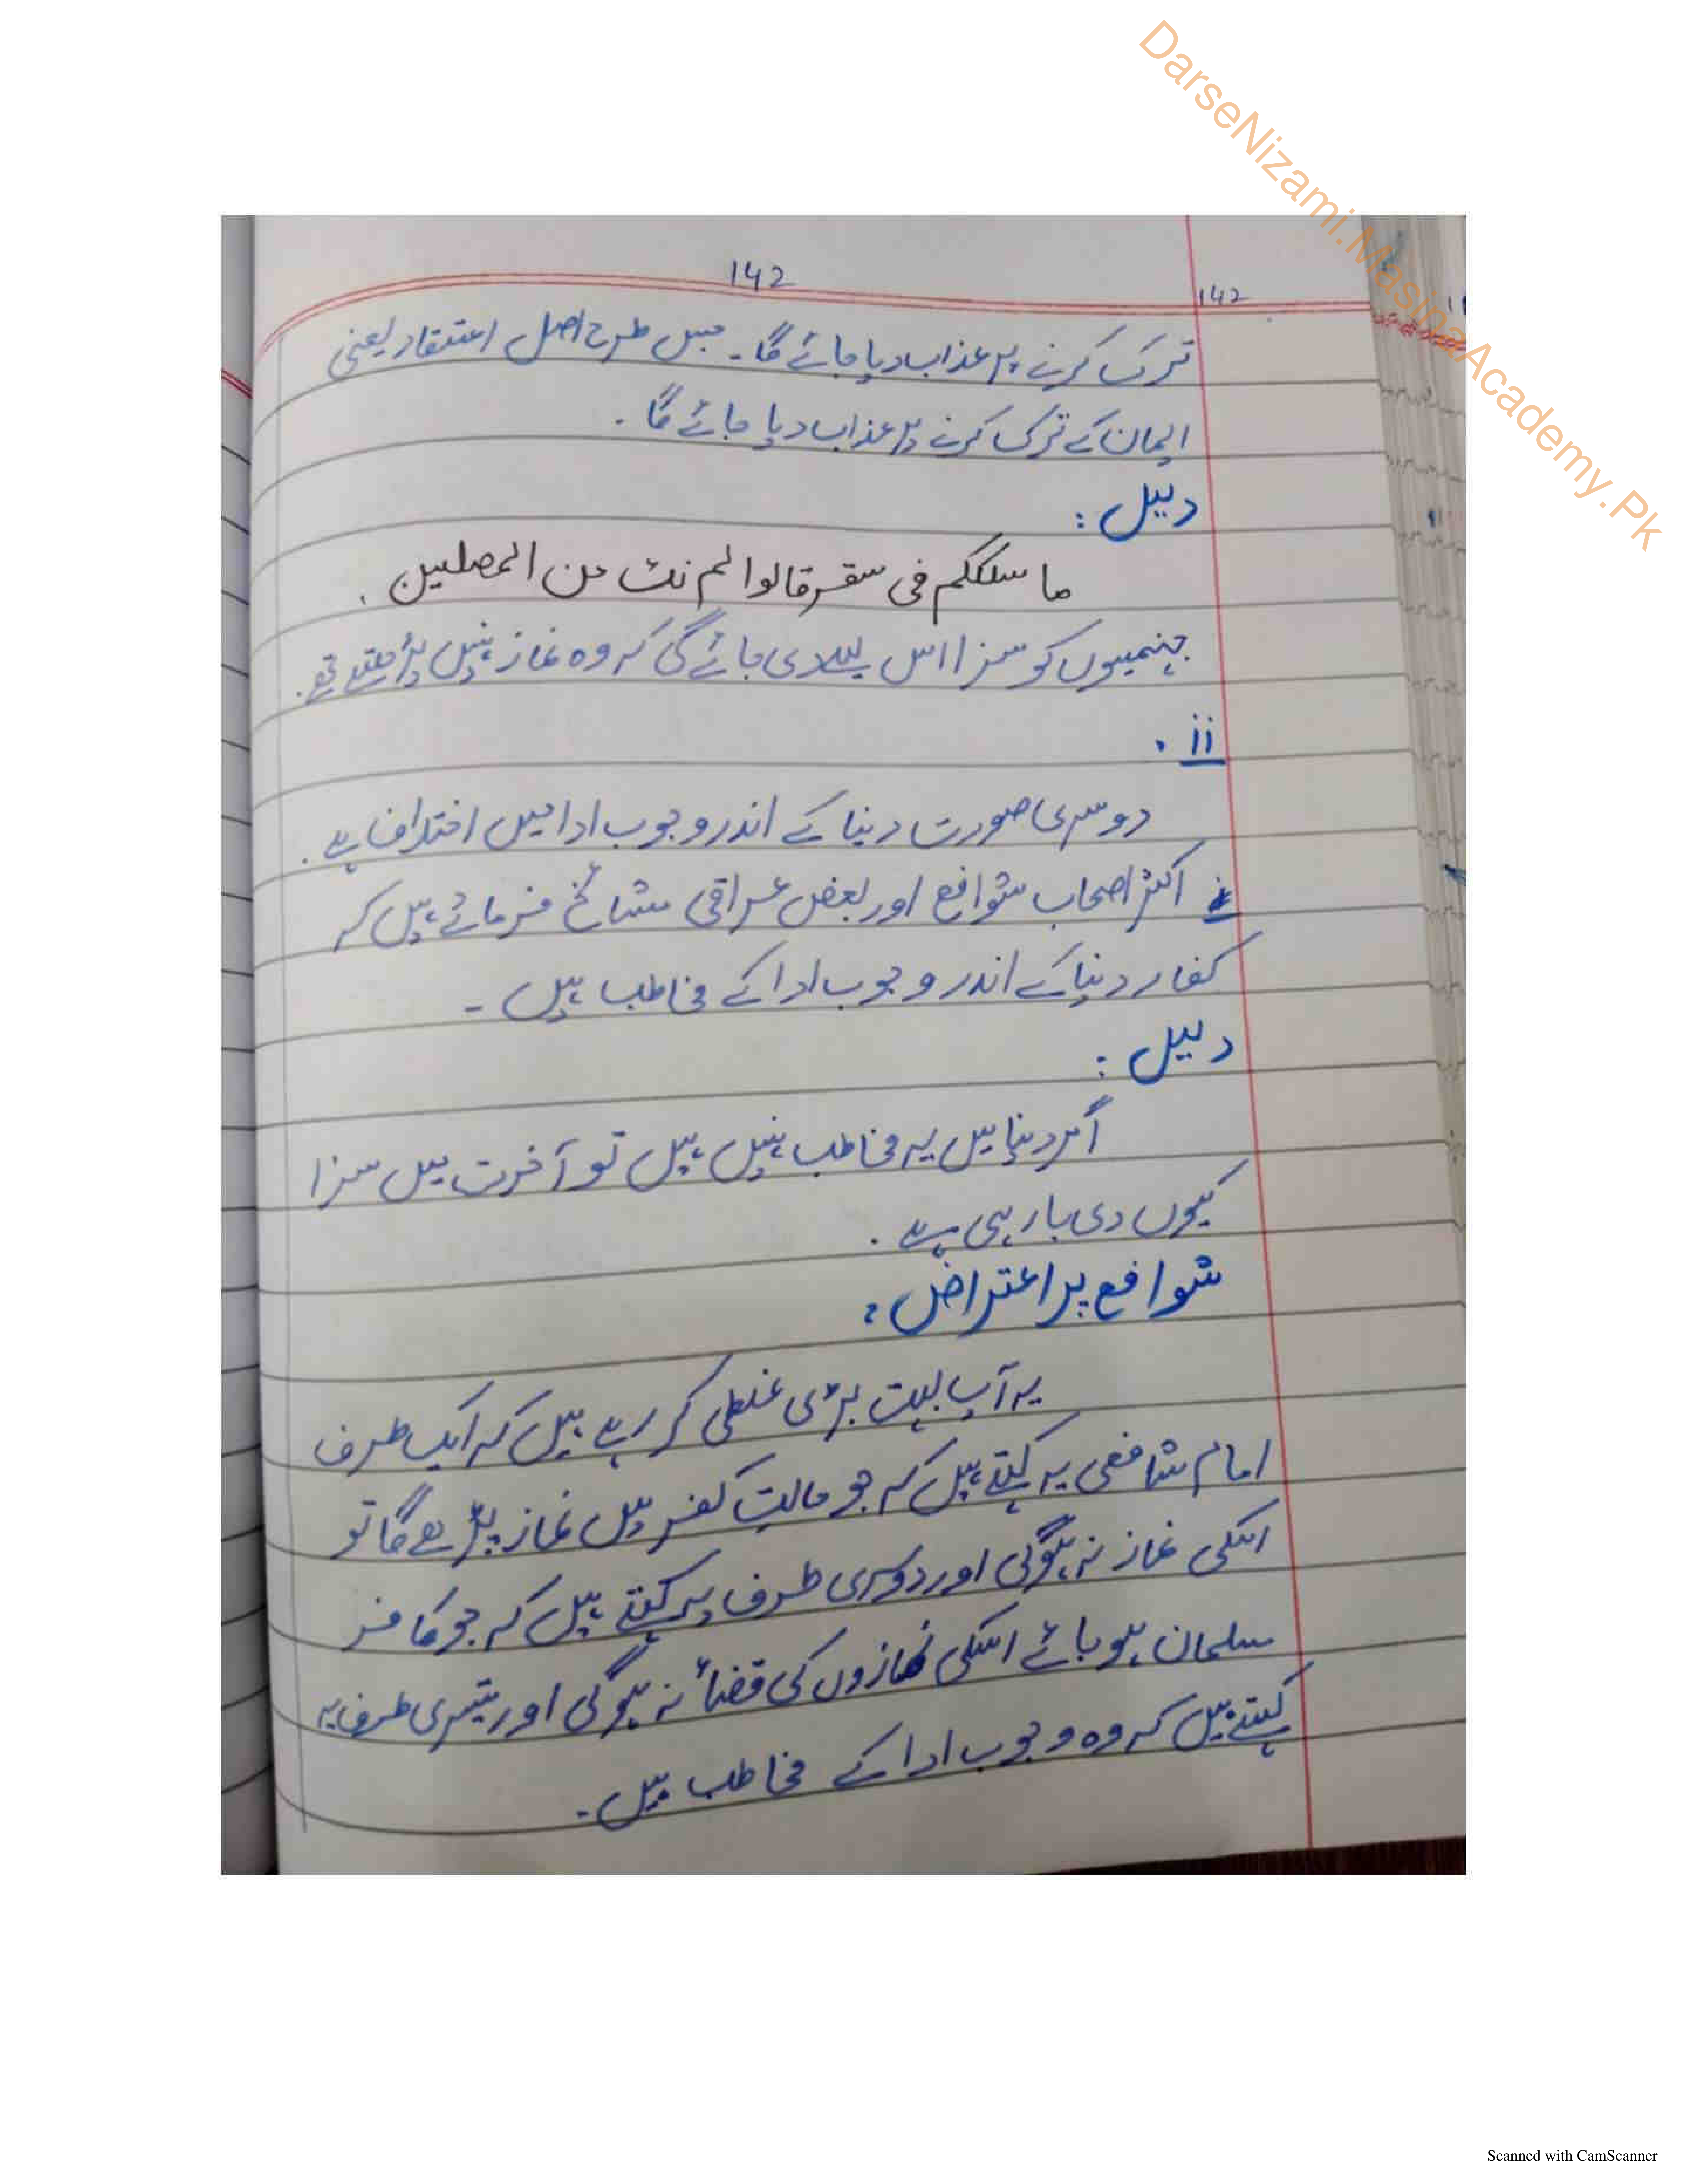 DarseNizami.MasinaAcademy.Pk
142
142
ترک کرنے پر عذاب دیا جائے گا۔ جس طرح اصل اعتقاد یعنی
ایمان کے ترک کرنے پر عذاب دیا جائے گا۔
دلیل :
ما سلککم فی سقر قالوا لم نک من المصلین .
جہنمیوں کو سزا اس لیے دی جائے گی کہ وہ نماز نہیں پڑھتے تھے.
ii .
دوسری صورت دینا کے اندر وجوب ادا میں اختلاف ہے .
اکثر اصحاب شوافع اور بعض عراقی مشائخ فرماتے ہیں کہ
کفار دنیا کے اندر وجوب ادا کے مخاطب ہیں ۔
دلیل :
اگر دنیا میں یہ مخاطب نہیں ہیں تو آخرت میں سزا
کیوں دی جا رہی ہے .
شوافع پر اعتراض :
یہ آپ بہت بڑی غلطی کر رہے ہیں کہ ایک طرف
امام شافعی یہ کہتے ہیں کہ جو حالتِ کفر میں نماز پڑھے گا تو
اسکی نماز نہ ہوگی اور دوسری طرف یہ کہتے ہیں کہ جو کافر
مسلمان ہو جائے اسکی نمازوں کی قضاٗ نہ ہوگی اور تیسری طرف یہ
کہتے ہیں کہ وہ وجوب ادا کے مخاطب ہیں۔
Scanned with CamScanner